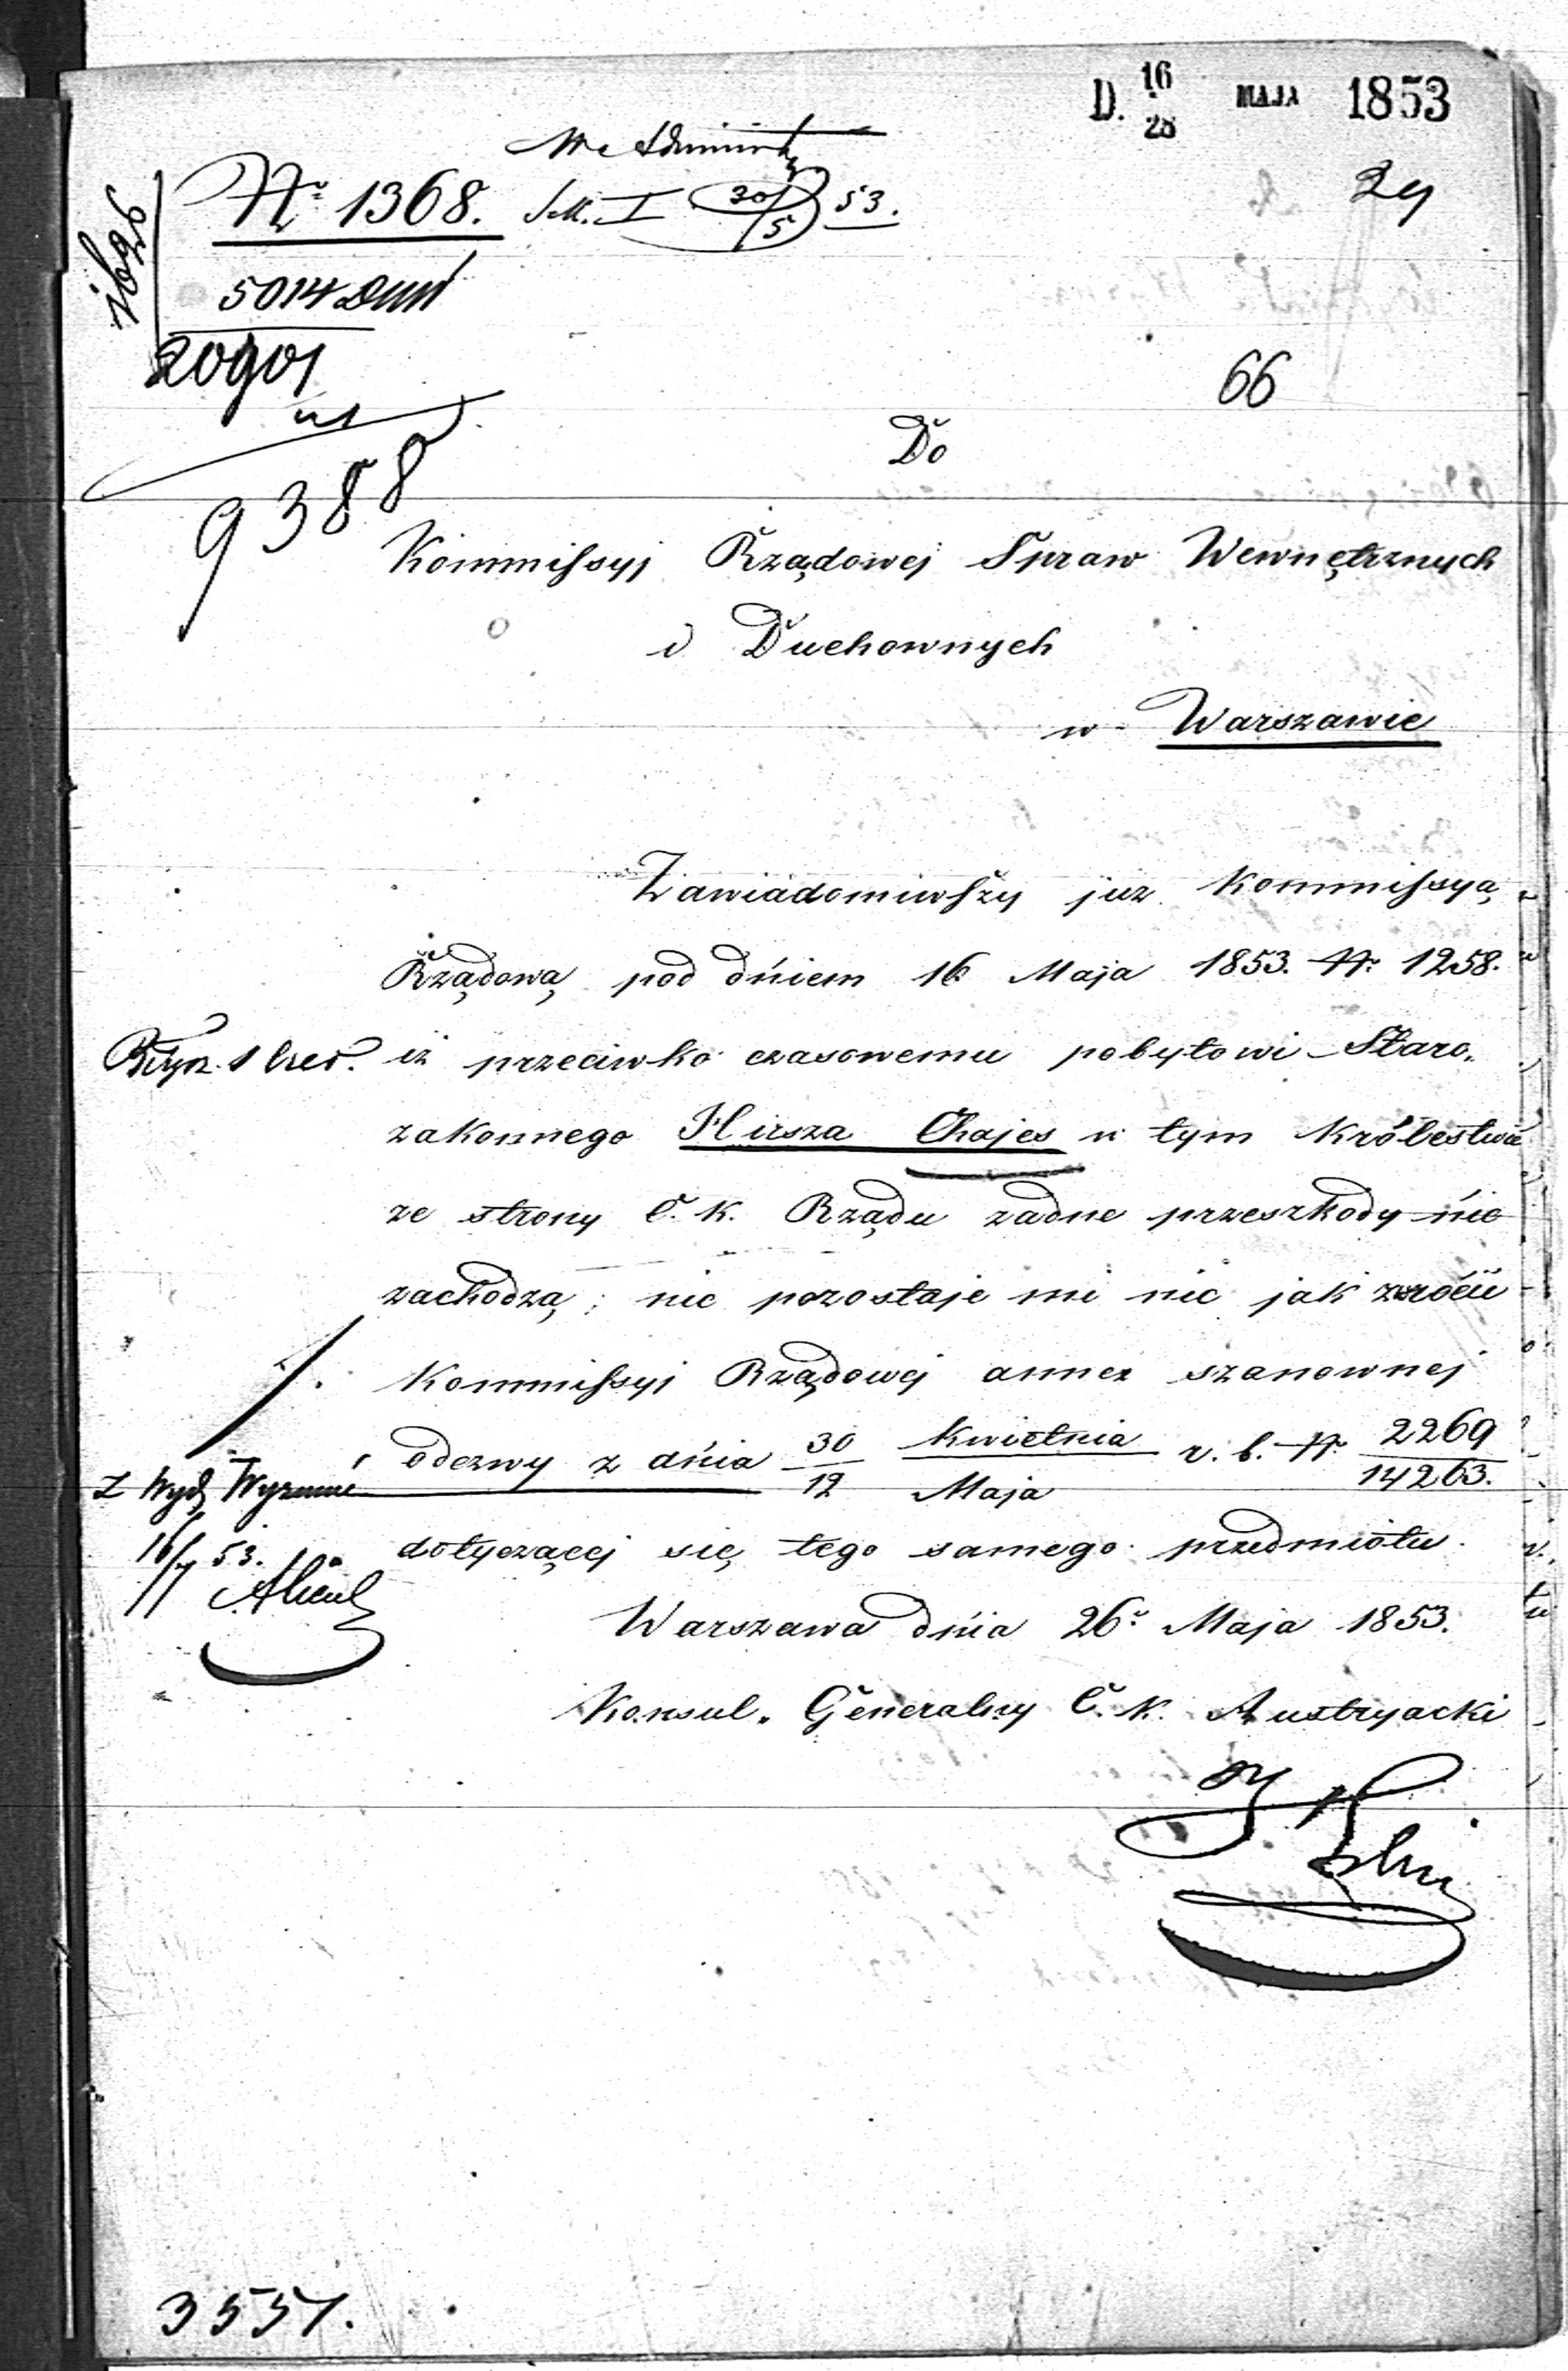 D. 16/28 MAJA 1853
29
Nr 1368. I 30/5 53.
16296
5014
20901
66
9388
Do
Kommissyi Rządowej Spraw Wewnętrznych
i Duchownych
w Warszawie
Zawiadomiwszy już Kommissyą
Rządową pod dniem 16 Maja 1853. Nr 1258.
iż przeciwko czasowemu pobytowi Staro„
zakonnego Hirsza Chajes w tym Królestwie
ze strony C. K. Rządu żadne przeszkody nie
zachodzą; nie pozostaje mi nic jak zwrócić
Kommissyi Rządowej annex szanownej
odezwy z dnia 30/12 Kwietnia/Maja r. b. Nr 2269/14263.
Z Wyd
dotyczącej się tego samego przedmiotu.
53.
Warszawa dnia 26 Maja 1853.
Konsul Generalny C. K. Austryacki
3551.